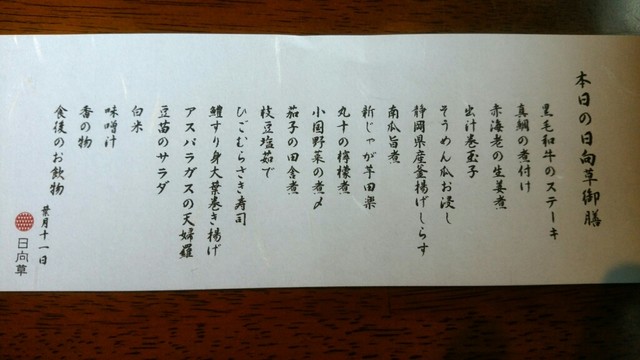 本日の日向草御膳
黒毛和牛のステーキ
真鯛の煮付け
赤海老の生姜煮
出汁巻玉子
そうめん瓜お浸し
静岡県産釜揚げしらす
南瓜旨煮
新じゃが芋田楽
丸十の檸檬煮
小国野菜の煮〆
茄子の田舎煮
枝豆塩茹で
ひごむらさき寿司
鱧すり身大葉巻き揚げ
アスパラガスの天婦羅
豆苗のサラダ
白米
味噌汁
香の物
食後のお飲物
葉月十一日
日向草